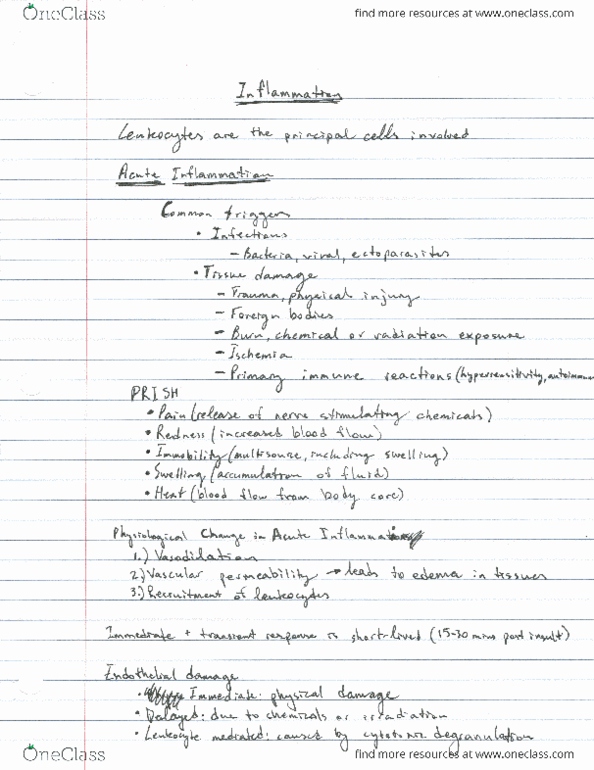 OneClass
find more resources at www.oneclass.com
Inflammation
Leukocytes are the principal cells involved
Acute Inflammation
Common triggers
• Infections
– Bacteria, viral, ectoparasites
• Tissue damage
– Trauma, physical injury
– Foreign bodies
– Burn, chemical or radiation exposure
– Ischemia
– Primary immune reactions (hypersensitivity, autoimmune
PRISH
• Pain (release of nerve stimulating chemicals)
• Redness (increased blood flow)
• Immobility (multisource, including swelling)
• Swelling (accumulation of fluid)
• Heat (blood flow from body core)
Physiological Change in Acute Inflammation
1.) Vasodilation
2.) Vascular permeability → leads to edema in tissues
3.) Recruitment of leukocytes
Immediate + transient response is short-lived (15-30 mins post insult)
Endothelial damage
• Immediate: physical damage
• Delayed: due to chemicals or irradiation
• Leukocyte mediated: caused by cytotoxic degranulation
OneClass
find more resources at www.oneclass.com